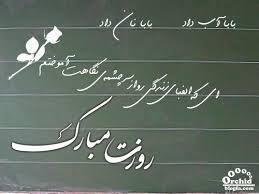 بابا آب داد    بابا نان داد
ای که الفبای زندگی را از سرچشمه‌ی نگاهت آموختم
روزت مبارک
Orchid
blogfa.com